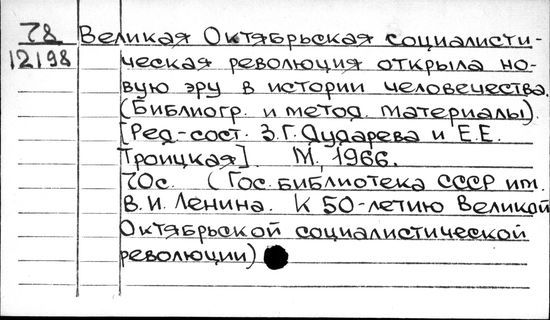 78 Великая Октябрьская социалисти-
12198 ческая революция открыла но-
вую эру в истории человечества.
(Библиогр. и метод. материалы).
[Ред-сост. З.Г. Дударева и Е.Е.
Троицкая]. М., 1966.
70с. (Гос. библиотека СССР им.
В.И. Ленина. К 50-летию Великой
Октябрьской социалистической
революции)